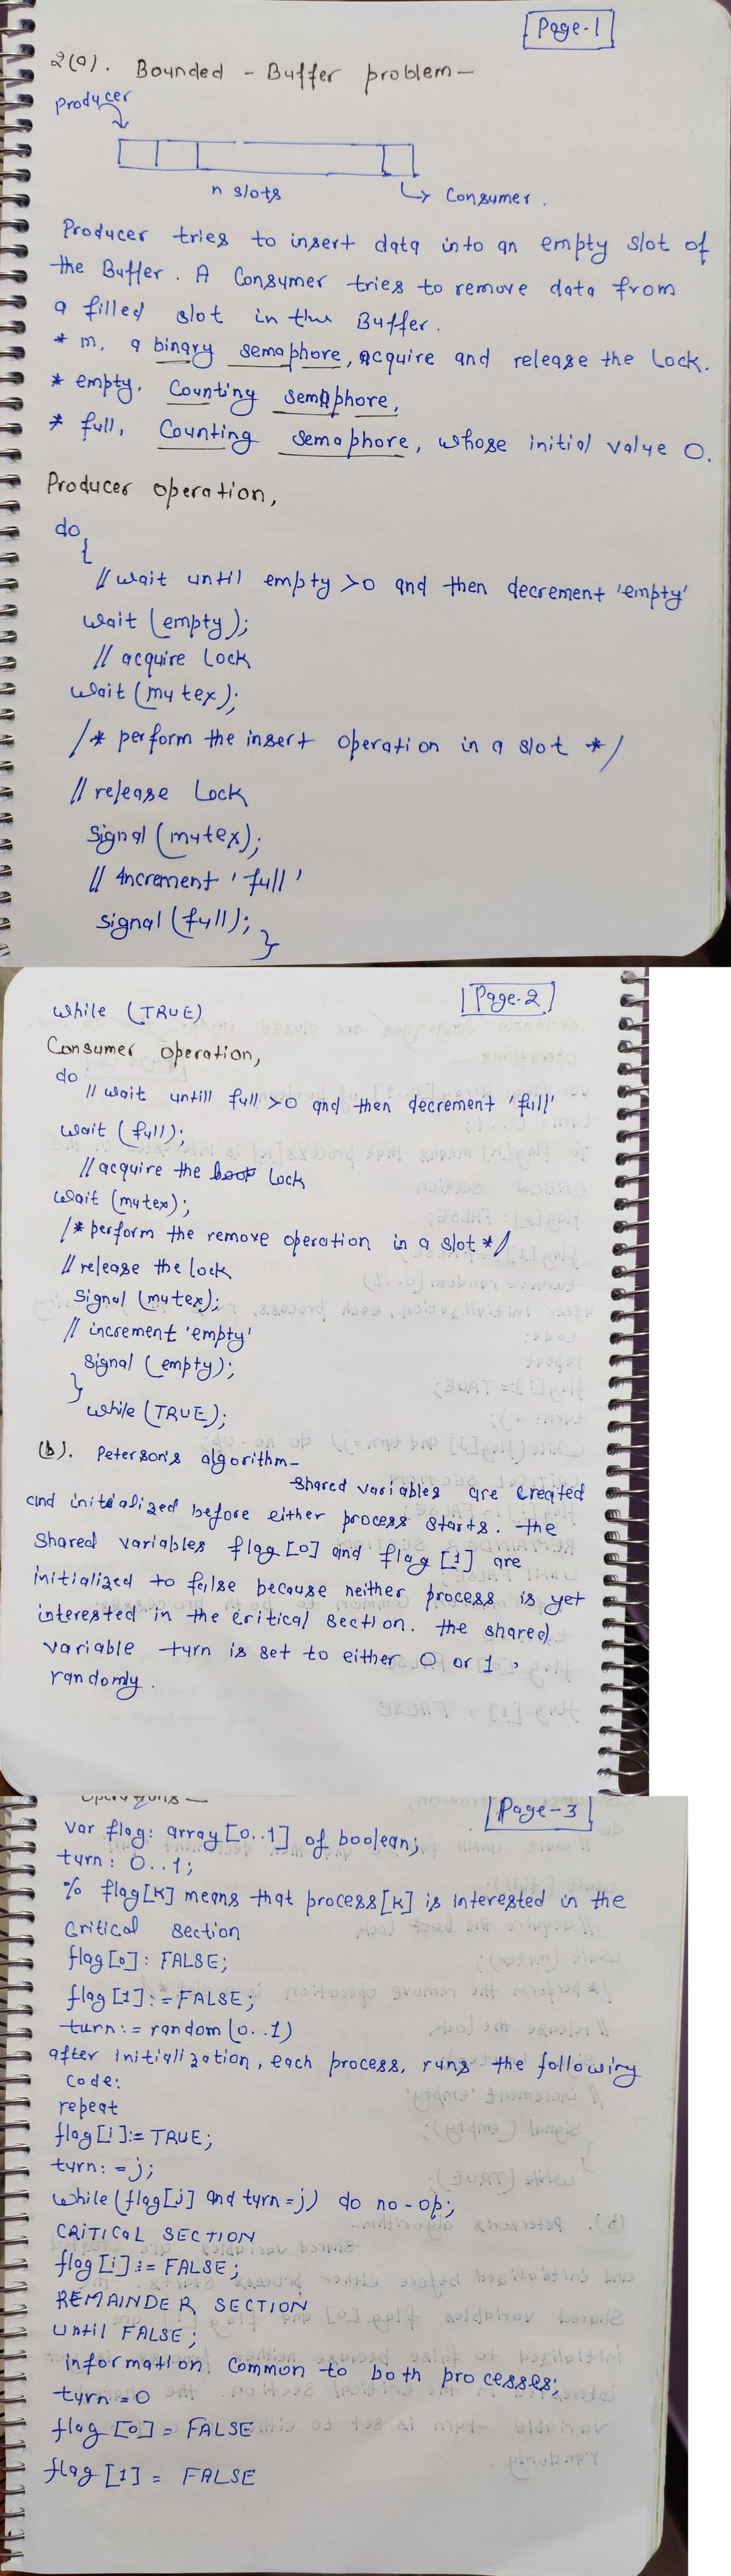 Page-1
2(a). Bounded - Buffer problem-
Producer
n slots
Consumer.
Producer tries to insert data into an empty slot of
the Buffer. A Consumer tries to remove data from
a filled slot in the Buffer.
* m, a binary semaphore, acquire and release the Lock.
* empty, Counting semaphore,
* full, Counting semaphore, whose initial value 0.
Producer operation,
do
{
// wait until empty >0 and then decrement 'empty'
wait (empty);
// acquire Lock
wait (mutex);
/* perform the insert operation in a slot */
// release Lock
signal (mutex);
// Increment 'full'
signal (full); }
Page-2
while (TRUE)
Consumer operation,
do // wait untill full >0 and then decrement 'full'
wait (full);
// acquire the Lock
wait (mutex);
/* perform the remove operation in a slot */
// release the lock
signal (mutex);
// increment 'empty'
signal (empty);
}
while (TRUE);
(b). Peterson's algorithm-
shared variables are created
and initialized before either process starts. the
shared variables flag [0] and flag [1] are
initialized to false because neither process is yet
interested in the critical section. the shared
variable turn is set to either 0 or 1,
randomly.
operations —
Page-3
var flag: array [0..1] of boolean;
turn: 0..1;
% flag[k] means that process[k] is interested in the
Critical section
flag[0]: FALSE;
flag [1]:= FALSE;
turn:= random (0..1)
after initialization, each process, runs the following
code:
repeat
flag [i]:= TRUE;
turn: =j;
while (flag[j] and turn=j) do no-op;
CRITICAL SECTION
flag [i]:= FALSE;
REMAINDER SECTION
until FALSE;
information common to both processes;
turn = 0
flag [0] = FALSE
flag [1] = FALSE